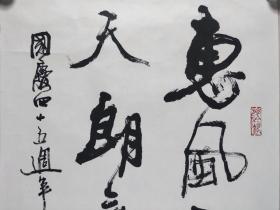 惠風
天朗
國慶四十五週年